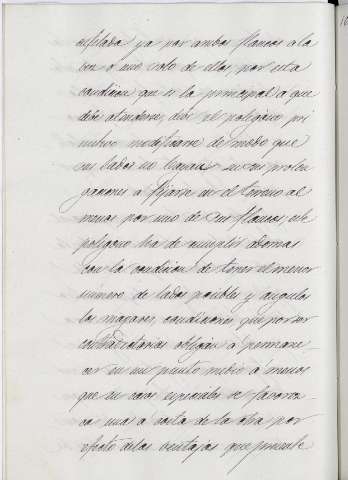 enfilada ya por ambos flancos a la
vez o uno solo de ellos, por esta
condicion que es la principal a que
debe atenderse, debe el poligono pri
mitivo modificarse de modo que
sus lados no tengan en sus prolon
gaciones a fijarse en el terreno al
menos por uno de sus flancos, este
poligono ha de cumplir ademas
con la condicion de tener el menor
número de lados posibles y angulos
los mayores, condiciones que por ser
contradictorias obligan á permane
cer en un punto medio á menos
que en casos especiales se favorez
can unas á costa de la otra por
efecto de las ventajas que presente